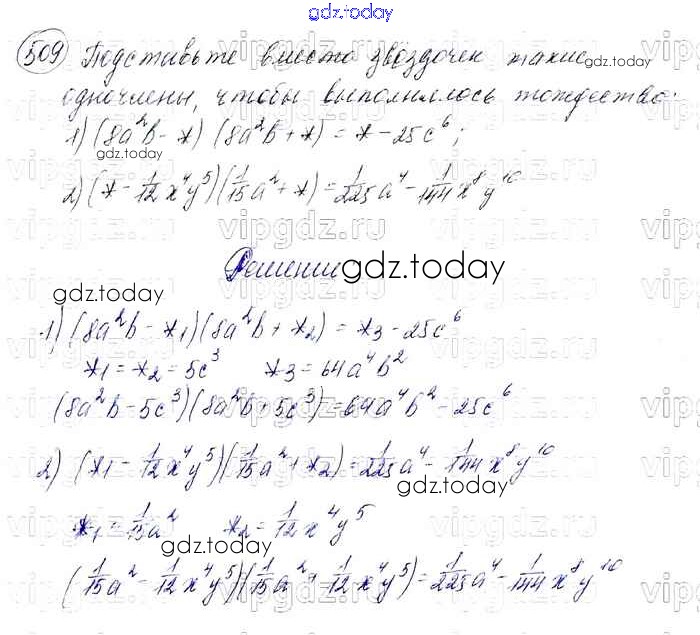 gdz.today
509 Подставьте вместо звёздочек такие
одночлены, чтобы выполнялось тождество:
1) (8a²b - *) (8a²b + *) = * - 25c⁶;
2) (* - 1/12 x⁴y⁵)(1/15 a² + *) = 1/225 a⁴ - 1/144 x⁸y¹⁰
Решение
1) (8a²b - *1)(8a²b + *2) = *3 - 25c⁶
*1 = *2 = 5c³ *3 = 64a⁴b²
(8a²b - 5c³)(8a²b + 5c³) = 64a⁴b² - 25c⁶
2) (*1 - 1/12 x⁴y⁵)(1/15 a² + *2) = 1/225 a⁴ - 1/144 x⁸y¹⁰
*1 = 1/15 a² *2 = 1/12 x⁴y⁵
(1/15 a² - 1/12 x⁴y⁵)(1/15 a² + 1/12 x⁴y⁵) = 1/225 a⁴ - 1/144 x⁸y¹⁰